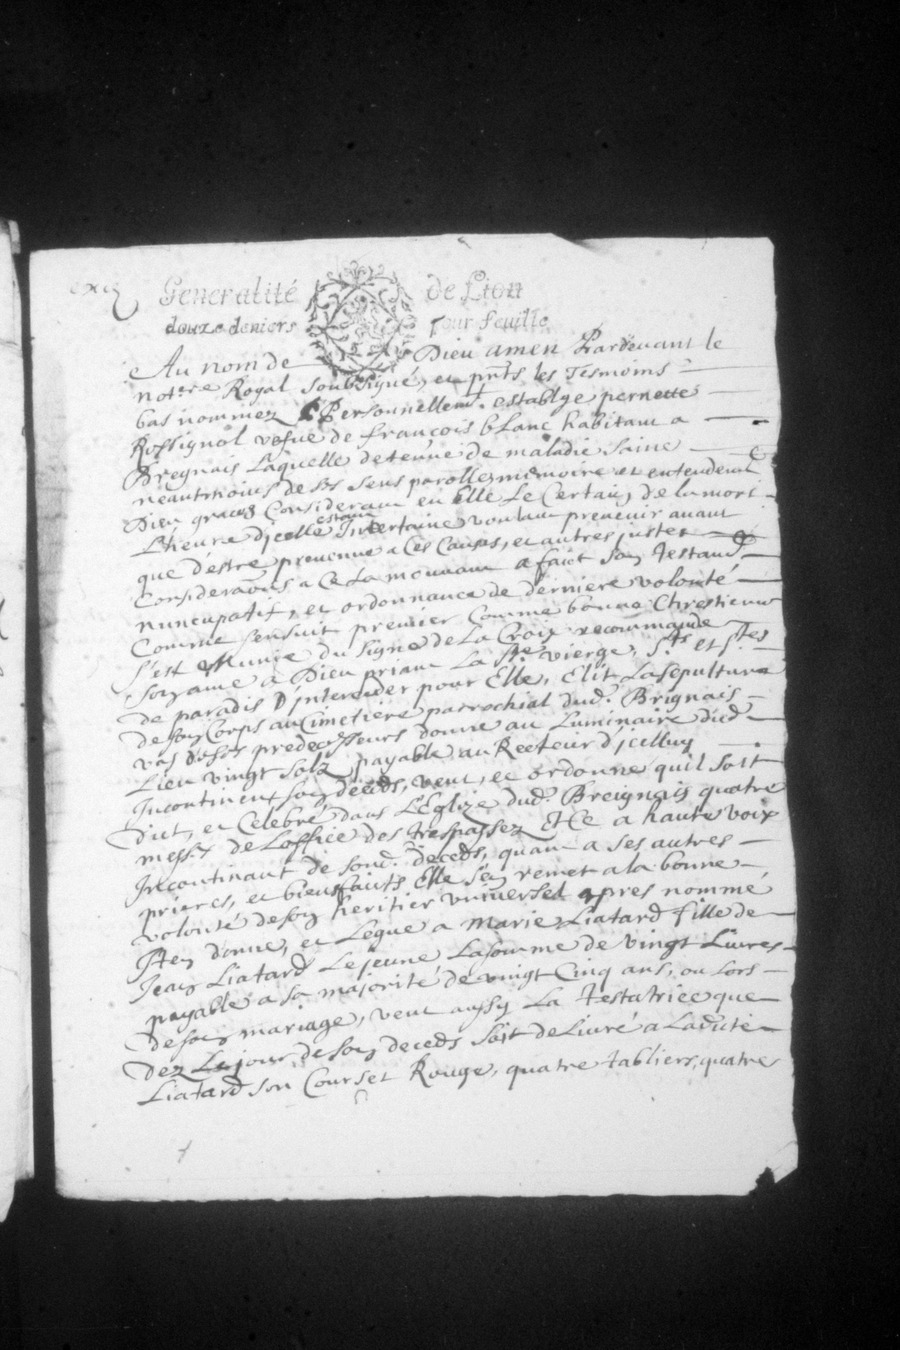 Generalité de Lion
douze deniers pour feuille
Au nom de Dieu amen Pardevant le
not.re Royal Soubsigné, et pnts les Tesmoins
bas nommez Personnellem.t establye pernette
Rossignol vefue de francois blanc habitant a
Breignais Laquelle detenue de maladie Saine
neautmoins de ses sens parolle memoire et entendem.t
Dieu graces Considerant en Elle Le Certain, de la mort
Lheure djcelle estant Incertaine voulant prevenir avant
que destre prevenue a Ces Causes, et autres justes
Considerations a Ce La mouvant a faict Son Testam.t
nuncupatif, et ordonnance de derniere volonté
Comme sensuit premier Comme bonne Chrestienne
S'est Munie du Signe de La Croix recommande
Son ame a Dieu priant La Ste vierge, Sts et Stes
de paradis D'interceder pour Elle, Elit La Sepulture
de son Corps au Cimetiere parrochial dud. Brignais
vas de ses predecesseurs donne au Luminaire dud
Lieu vingt Solz payable au Recteur d'jcelluy
Incontinent son deceds, veut, et ordonne quil soit
dict, et Celebré dans L'Eglize dud. Breignais quatre
mess.s de Loffice des trespassez Et Ce a haute voix
Incontinant de sond. deceds, quant a ses autres
prieres, et bienfaits Elle sen remet a la bonne
volonté de son heritier vniversel apres nommé
Iten donne, et Legue a Marie Liatard fille de
Jean Liatard Le jeune La somme de vingt Livres
payable a sa majorité de vingt Cinq ans, ou Lors
de son mariage, veut aussy La Testatrice que
dez Le jour de son deceds Soit deLivré a Ladicte
Liatard son Courset Rouge, quatre tabliers, quatre